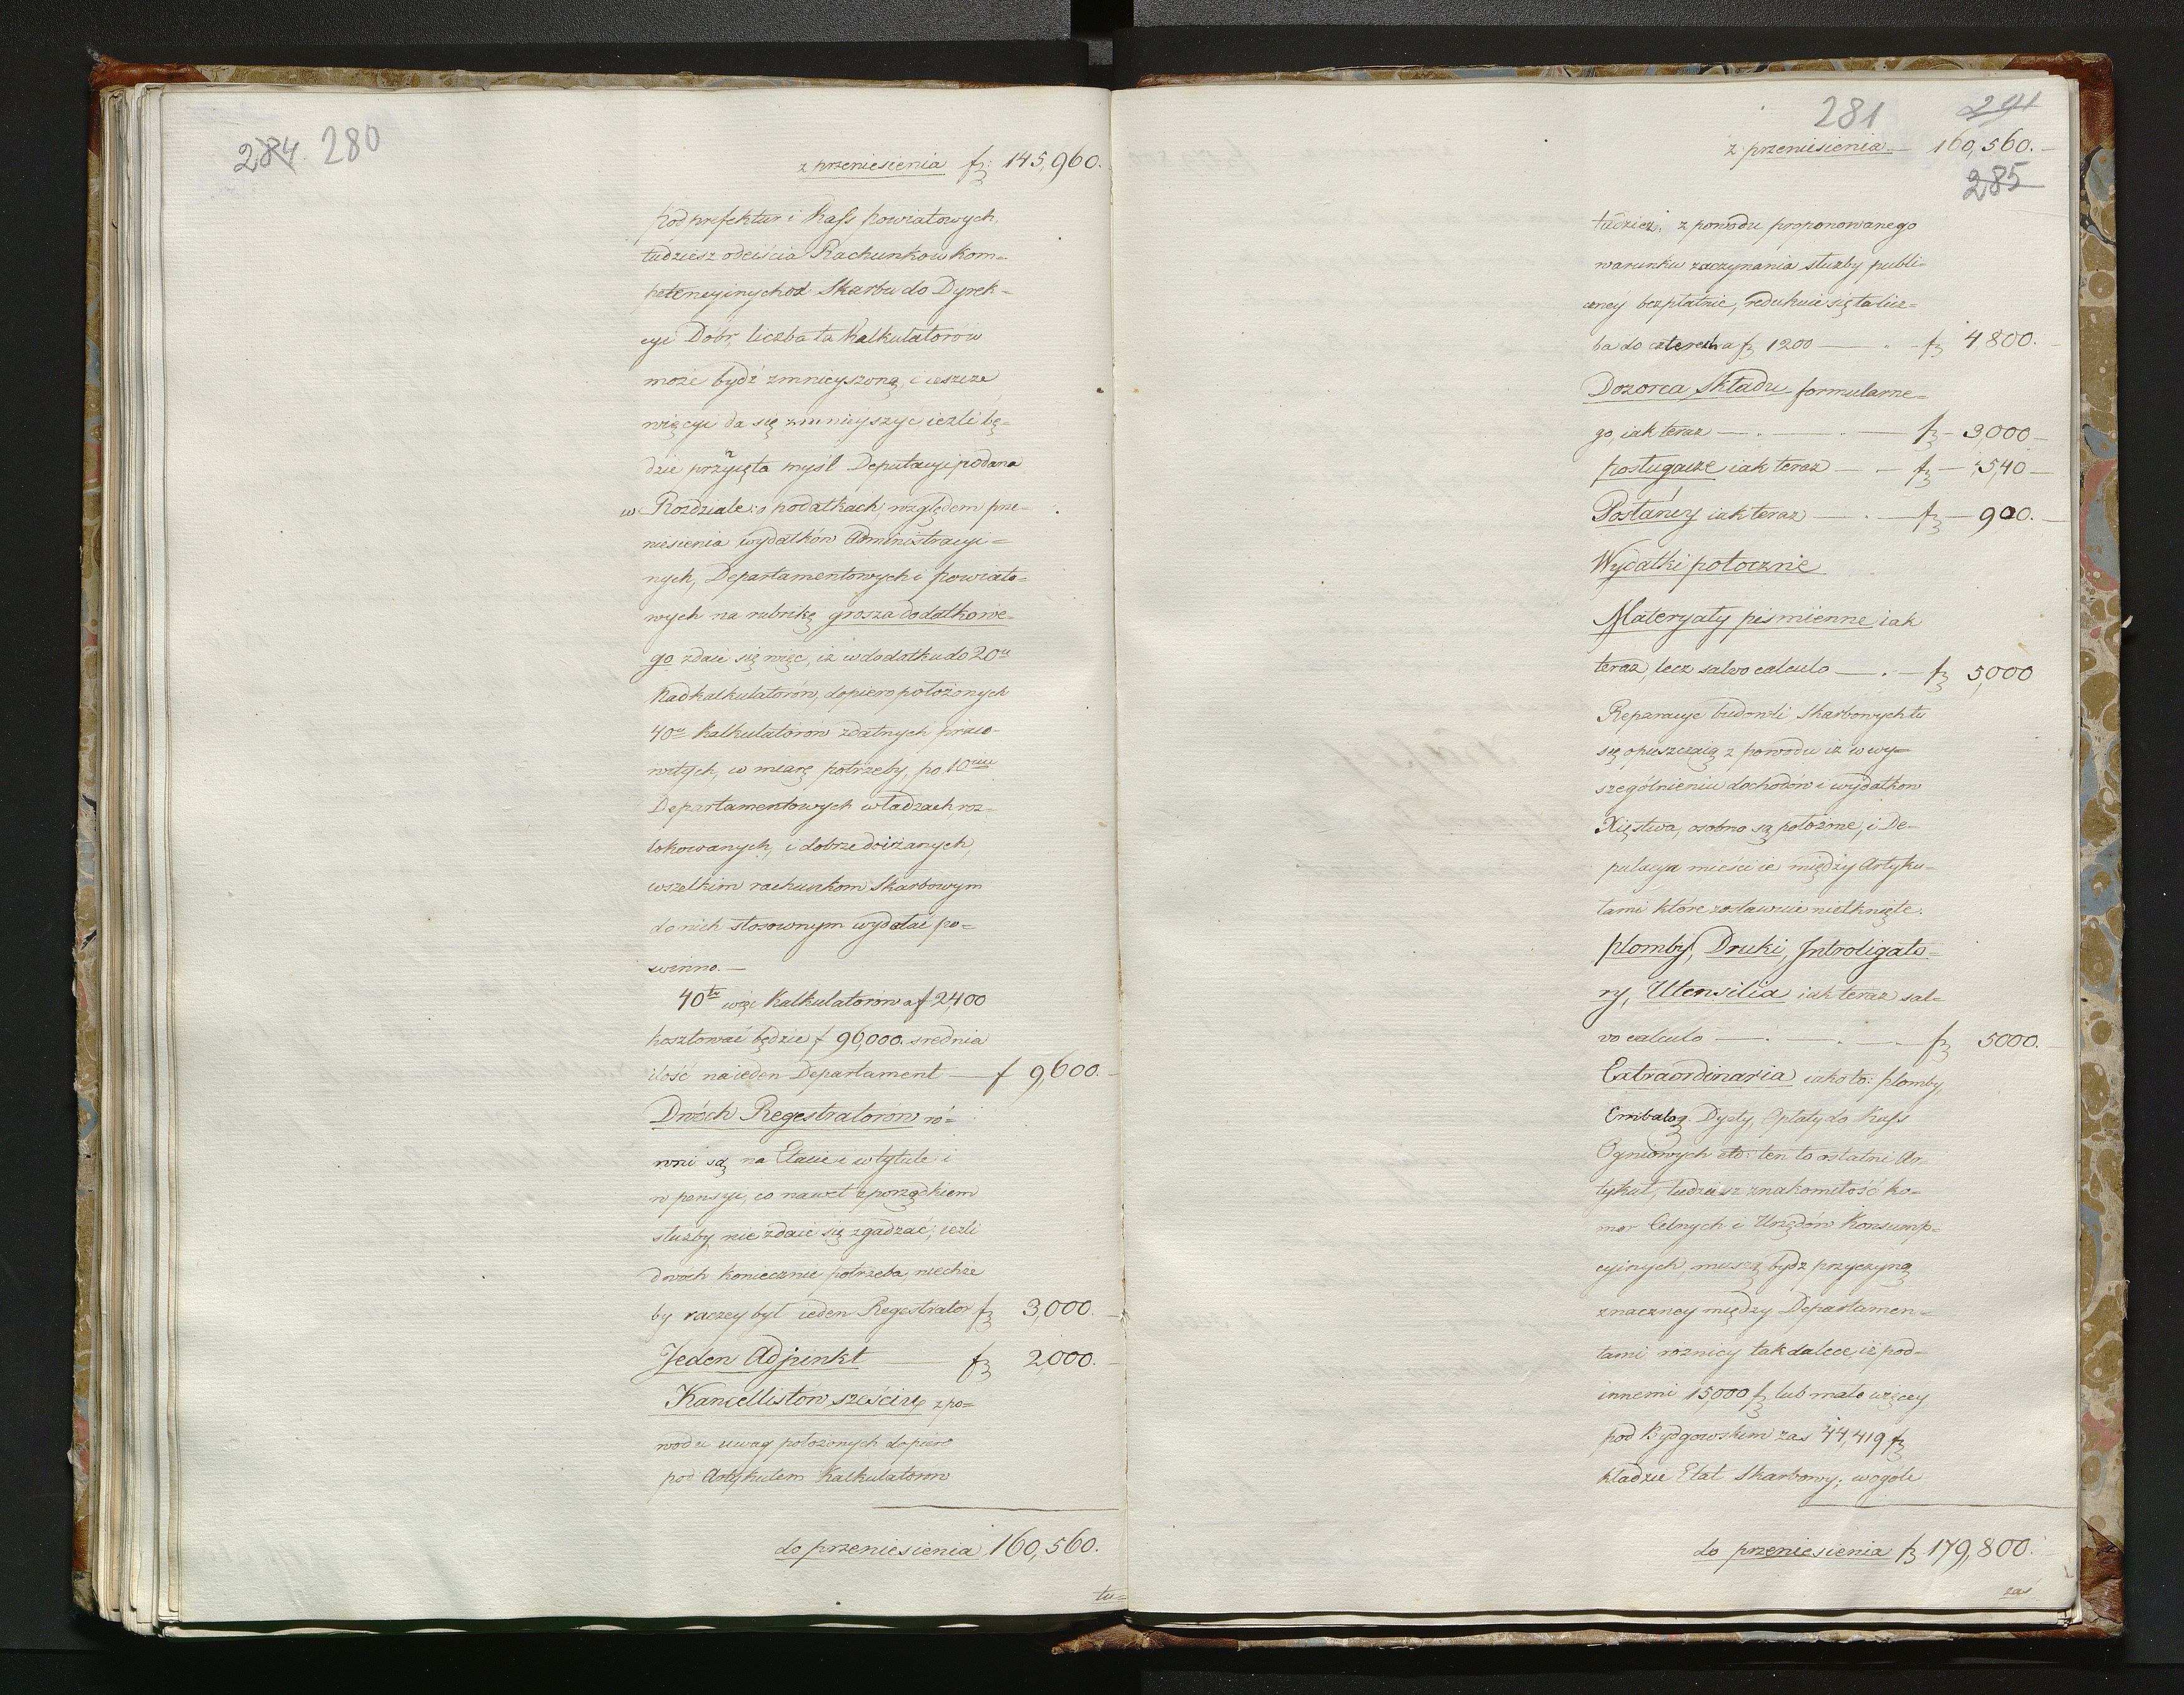 284 280
z przeniesienia f: 145,960.
podprefektur i Kass powiatowych,
tudziesz odeiścia Rachunkow Kom=
petencyinych od Skarbu do Dyrek=
cyi Dóbr, liczba ta Kalkulatorów
może bydź zmnieyszoną, i ieszcze
więcyi da się zmnieyszyc ieźli bę=
dzie przyięta myśl Deputacyi podana
w Rozdziale: o podatkach, względem prze=
niesienia wydatków Administracyi=
nych, Departamentowych i powiato=
wych na rubrikę grosza dodatkowe=
go zdaie się więc, iż w dodatku do 20u
Nadkalkulatorów, dopiero położonych
40u Kalkulatorów zdatnych praco=
witych, w miarę potrzeby, po 10ciu
Departamentowych władzach roz=
lokowanych, i dobrze doirzanych,
wszelkim rachunkom Skarbowym
do nich stosownym wydołać po=
winno.—
40tu więc Kalkulatorów a f 2400
kosztować będzie f 96,000. srednia
ilość na ieden Departament — f 9,600.
Dwóch Regestratorów ró=
wni są na Etacie i w tytule i
w pensyi, co nawet z porządkiem
służby nie zdaie się zgadzać; ieżli
dwóch koniecznie potrzeba, niechże
by raczey był ieden Regestrator f 3,000.
Jeden Adjunkt — f 2,000.
Kancellistów sześciu z po=
wodu uwag położonych dopiero
pod Artykułem Kalkulatorow
do przeniesienia 160,560.
tu=
281 291
z przeniesienia — 160,560.
285
tudzież: z powodu proponowanego
warunku zaczynania służby publi=
czney bezpłatnie, redukuie się ta licz=
ba do czterech a f 1200 — f 4800.
Dozorca Składu formularne=
go iak teraz — f 3,000
posługacze iak teraz — f 540
Posłańcy iak teraz — f 900.
Wydatki potoczne
Materyały piśmienne iak
teraz, lecz salvo calculo — f 5,000
Reparacye budowli Skarbowych tu
się opuszczaią z powodu iż w wy=
szególnieniu dochodów i wydatkow
Xięstwa, osobno są położone, i De=
putacya mieści ie między Artyku=
łami które zostawuie nietknięte.
plomby, Druki, Introligato=
ry, Utensilia iak teraz sal=
vo calculo — f 5000.
Extraordinaria iako to: plomby,
Embalaz. Dyety, Opłaty do Kass
Ogniowych etc: ten to ostatni Ar=
tykuł, tudziesz znakomitość ko=
mor Celnych i Urzędów Konsump=
cyinych, muszą bydz przyczyną
znaczney między Departamen=
tami roznicy tak dalece, iż pod
innemi 15,000 f lub mało więcey
pod Bydgowskim zas 44,419 f
kładzie Etat Skarbowy; w ogóle
do przeniesienia f 179,800.
zas